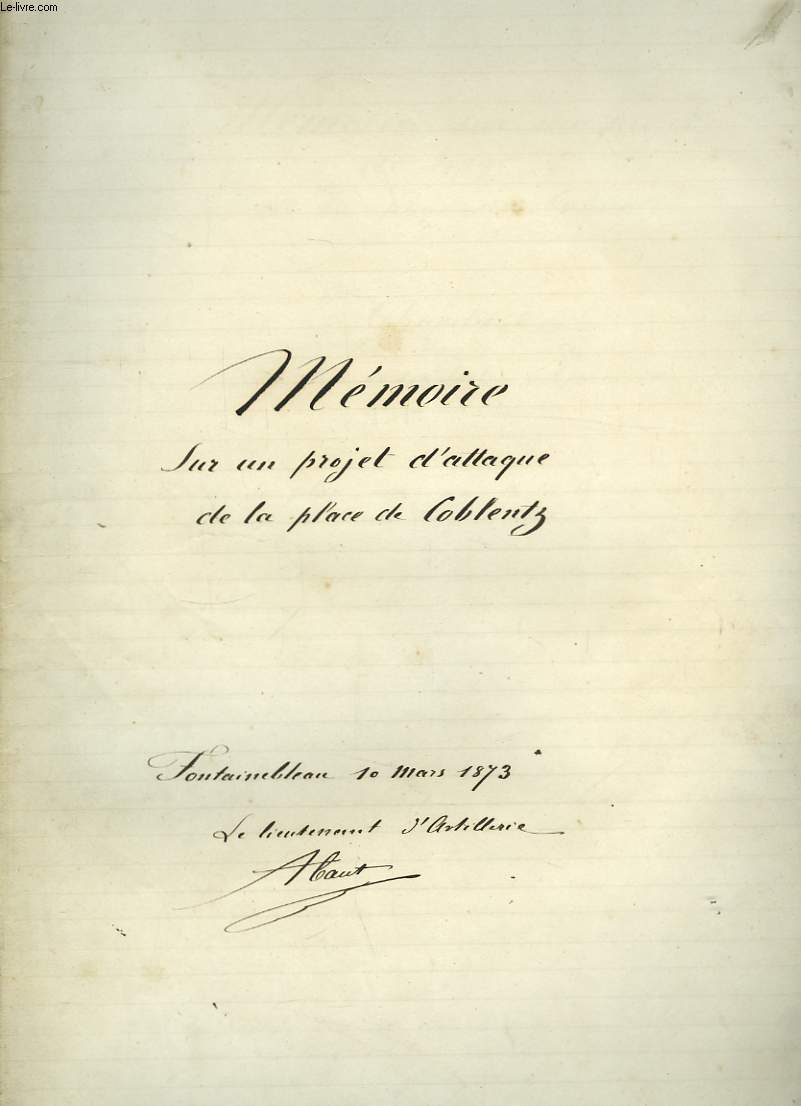 Le-livre.com
Mémoire
Sur un projet d'attaque
de la place de Coblentz
Fontainebleau 10 Mars 1873
Le lieutenant d'Artillerie